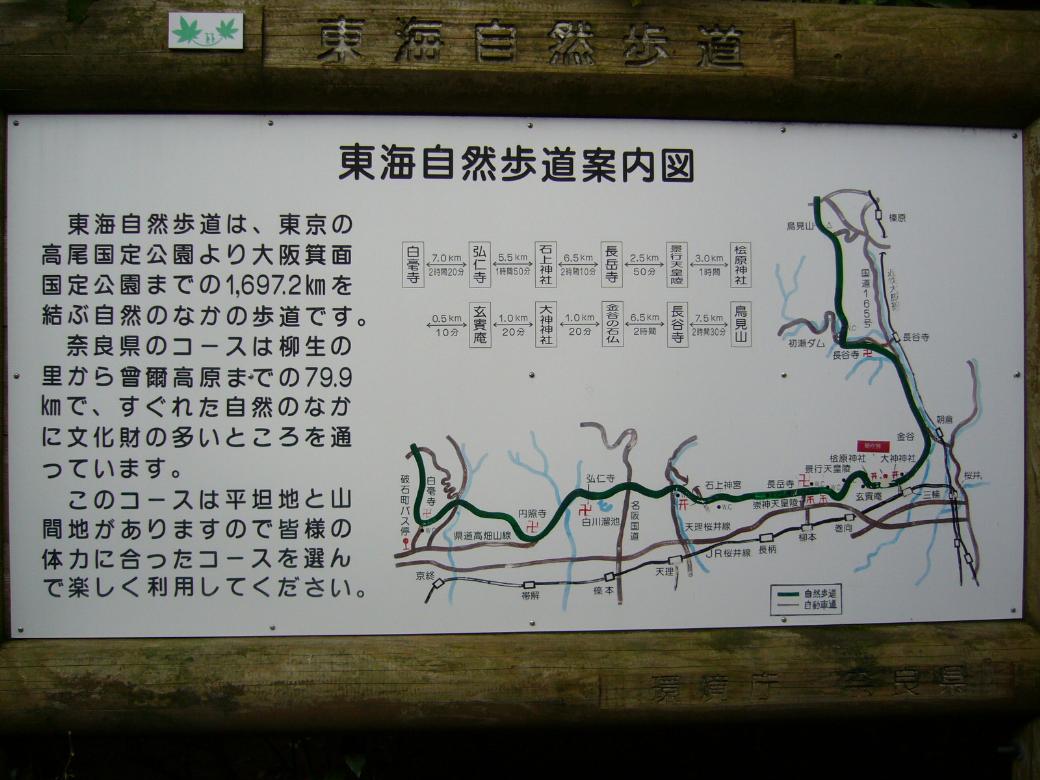 東海自然歩道
東海自然歩道案内図
東海自然歩道は、東京の
高尾国定公園より大阪箕面
国定公園までの1,697.2㎞を
結ぶ自然のなかの歩道です。
奈良県のコースは柳生の
里から曽爾高原までの79.9
㎞で、すぐれた自然のなか
に文化財の多いところを通
っています。
このコースは平坦地と山
間地がありますので皆様の
体力に合ったコースを選ん
で楽しく利用してください。
白毫寺 7.0km 2時間20分 弘仁寺 5.5km 1時間50分 石上神社 6.5km 2時間10分 長岳寺 2.5km 50分 景行天皇陵 3.0km 1時間 桧原神社
0.5km 10分 玄賓庵 1.0km 20分 大神神社 1.0km 20分 金谷の石仏 6.5km 2時間 長谷寺 7.5km 2時間30分 鳥見山
鳥見山
榛原
国道165号
初瀬ダム
W.C
長谷寺
長谷寺
朝倉
金谷
桧原神社
大神神社
景行天皇陵
桜井
長岳寺
W.C
崇神天皇陵
玄賓庵
三輪
巻向
柳本
石上神宮
W.C
天理桜井線
長柄
JR桜井線
天理
弘仁寺
白川溜池
名阪国道
円照寺
県道高畑山線
白毫寺
W.C
破石町バス停
京終
帯解
櫟本
自然歩道
自動車道
環境庁 奈良県